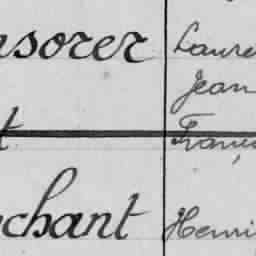 nsorer Laure
Jean
t Franç
chant Henri